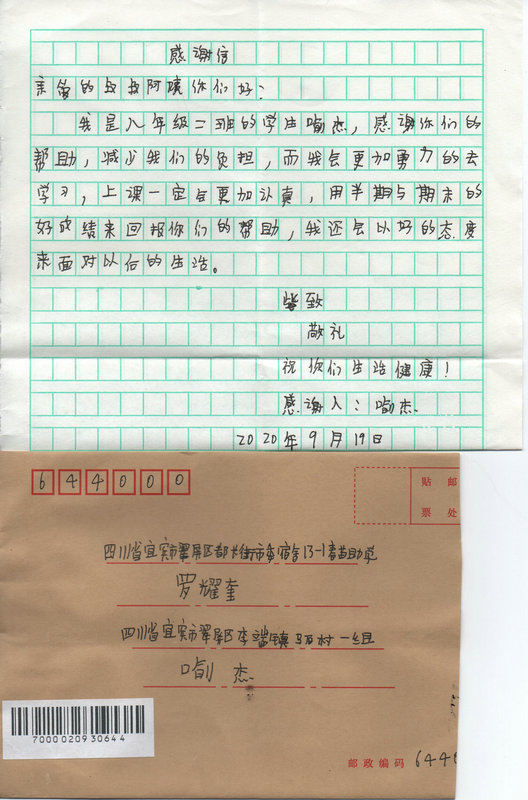 感谢信
亲爱的叔叔阿姨你们好：
我是八年级二班的学生喻杰，感谢你们的
帮助，减少我们的负担，而我会更加勇力的去
学习，上课一定会更加认真，用半期与期末的
好成结来回报你们的帮助，我还会以好的态度
来面对以后的生活。
此致
敬礼
祝你们生活健康！
感谢人：喻杰
2020年9月19日
644000
贴 邮
票 处
四川省宜宾市翠屏区都长街市委宿舍13-1春苗助学
罗耀奎
四川省宜宾市翠屏区李端镇 村一组
喻杰
7000020930644
邮政编码 644